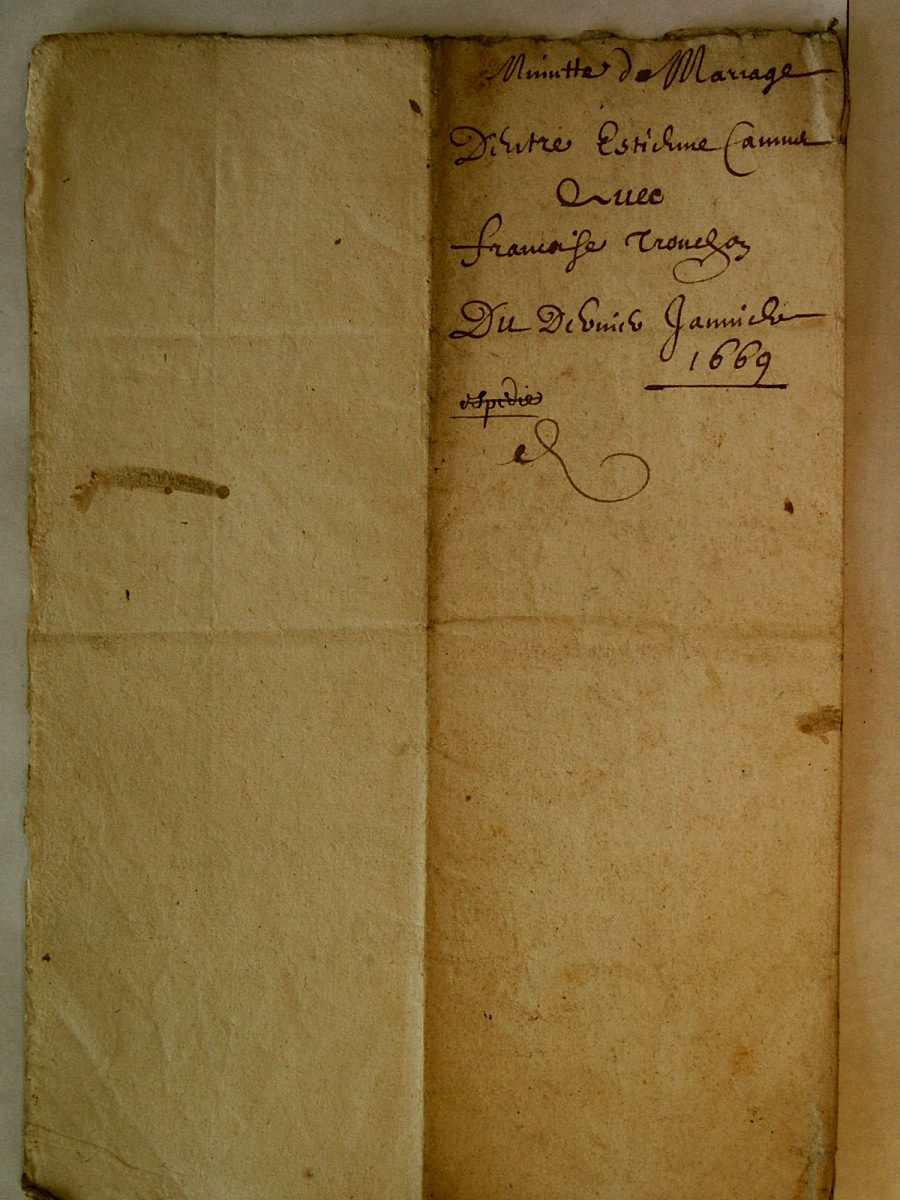 Minutte de Mariage
D'entre Estienne Camus
Avec
francoise Tronchon
Du Dernier Janvier
1669
expedie